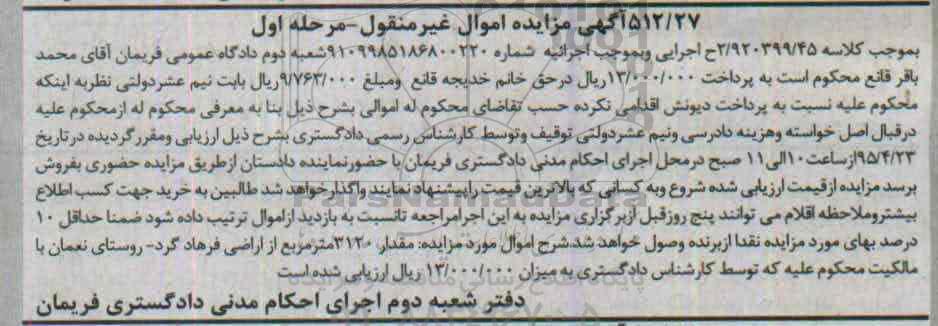 ۵۱۲/۲۷آگهی مزایده اموال غیرمنقول-مرحله اول
بموجب کلاسه ۲/۹۲۰۳۹۹/۴۵ح اجرایی وبموجب اجرائیه شماره ۹۱۰۹۹۸۵۱۸۶۸۰۰۲۲۰شعبه دوم دادگاه عمومی فریمان آقای محمد
باقر قانع محکوم است به پرداخت ۱۳/۰۰۰/۰۰۰ریال درحق خانم خدیجه قانع ومبلغ ۹/۷۶۳/۰۰۰ریال بابت نیم عشردولتی نظربه اینکه
محکوم علیه نسبت به پرداخت دیونش اقدامی نکرده حسب تقاضای محکوم له اموالی بشرح ذیل بنا به معرفی محکوم له ازمحکوم علیه
درقبال اصل خواسته وهزینه دادرسی ونیم عشردولتی توقیف وتوسط کارشناس رسمی دادگستری بشرح ذیل ارزیابی ومقررگردیده درتاریخ
۹۵/۴/۲۳ازساعت۱۰الی۱۱ صبح درمحل اجرای احکام مدنی دادگستری فریمان با حضورنماینده دادستان ازطریق مزایده حضوری بفروش
برسد مزایده ازقیمت ارزیابی شده شروع وبه کسانی که بالاترین قیمت راپیشنهاد نمایند واگذارخواهد شد طالبین به خرید جهت کسب اطلاع
بیشتروملاحظه اقلام می توانند پنج روزقبل ازبرگزاری مزایده به این اجرامراجعه تانسبت به بازدید ازاموال ترتیب داده شود ضمنا حداقل ۱۰
درصد بهای مورد مزایده نقدا ازبرنده وصول خواهد شد.شرح اموال مورد مزایده: مقدار، ۳۱۲۰مترمربع از اراضی فرهاد گرد- روستای نعمان با
مالکیت محکوم علیه که توسط کارشناس دادگستری به میزان ۱۳/۰۰۰/۰۰۰ ریال ارزیابی شده است
دفتر شعبه دوم اجرای احکام مدنی دادگستری فریمان
ParsNamadData